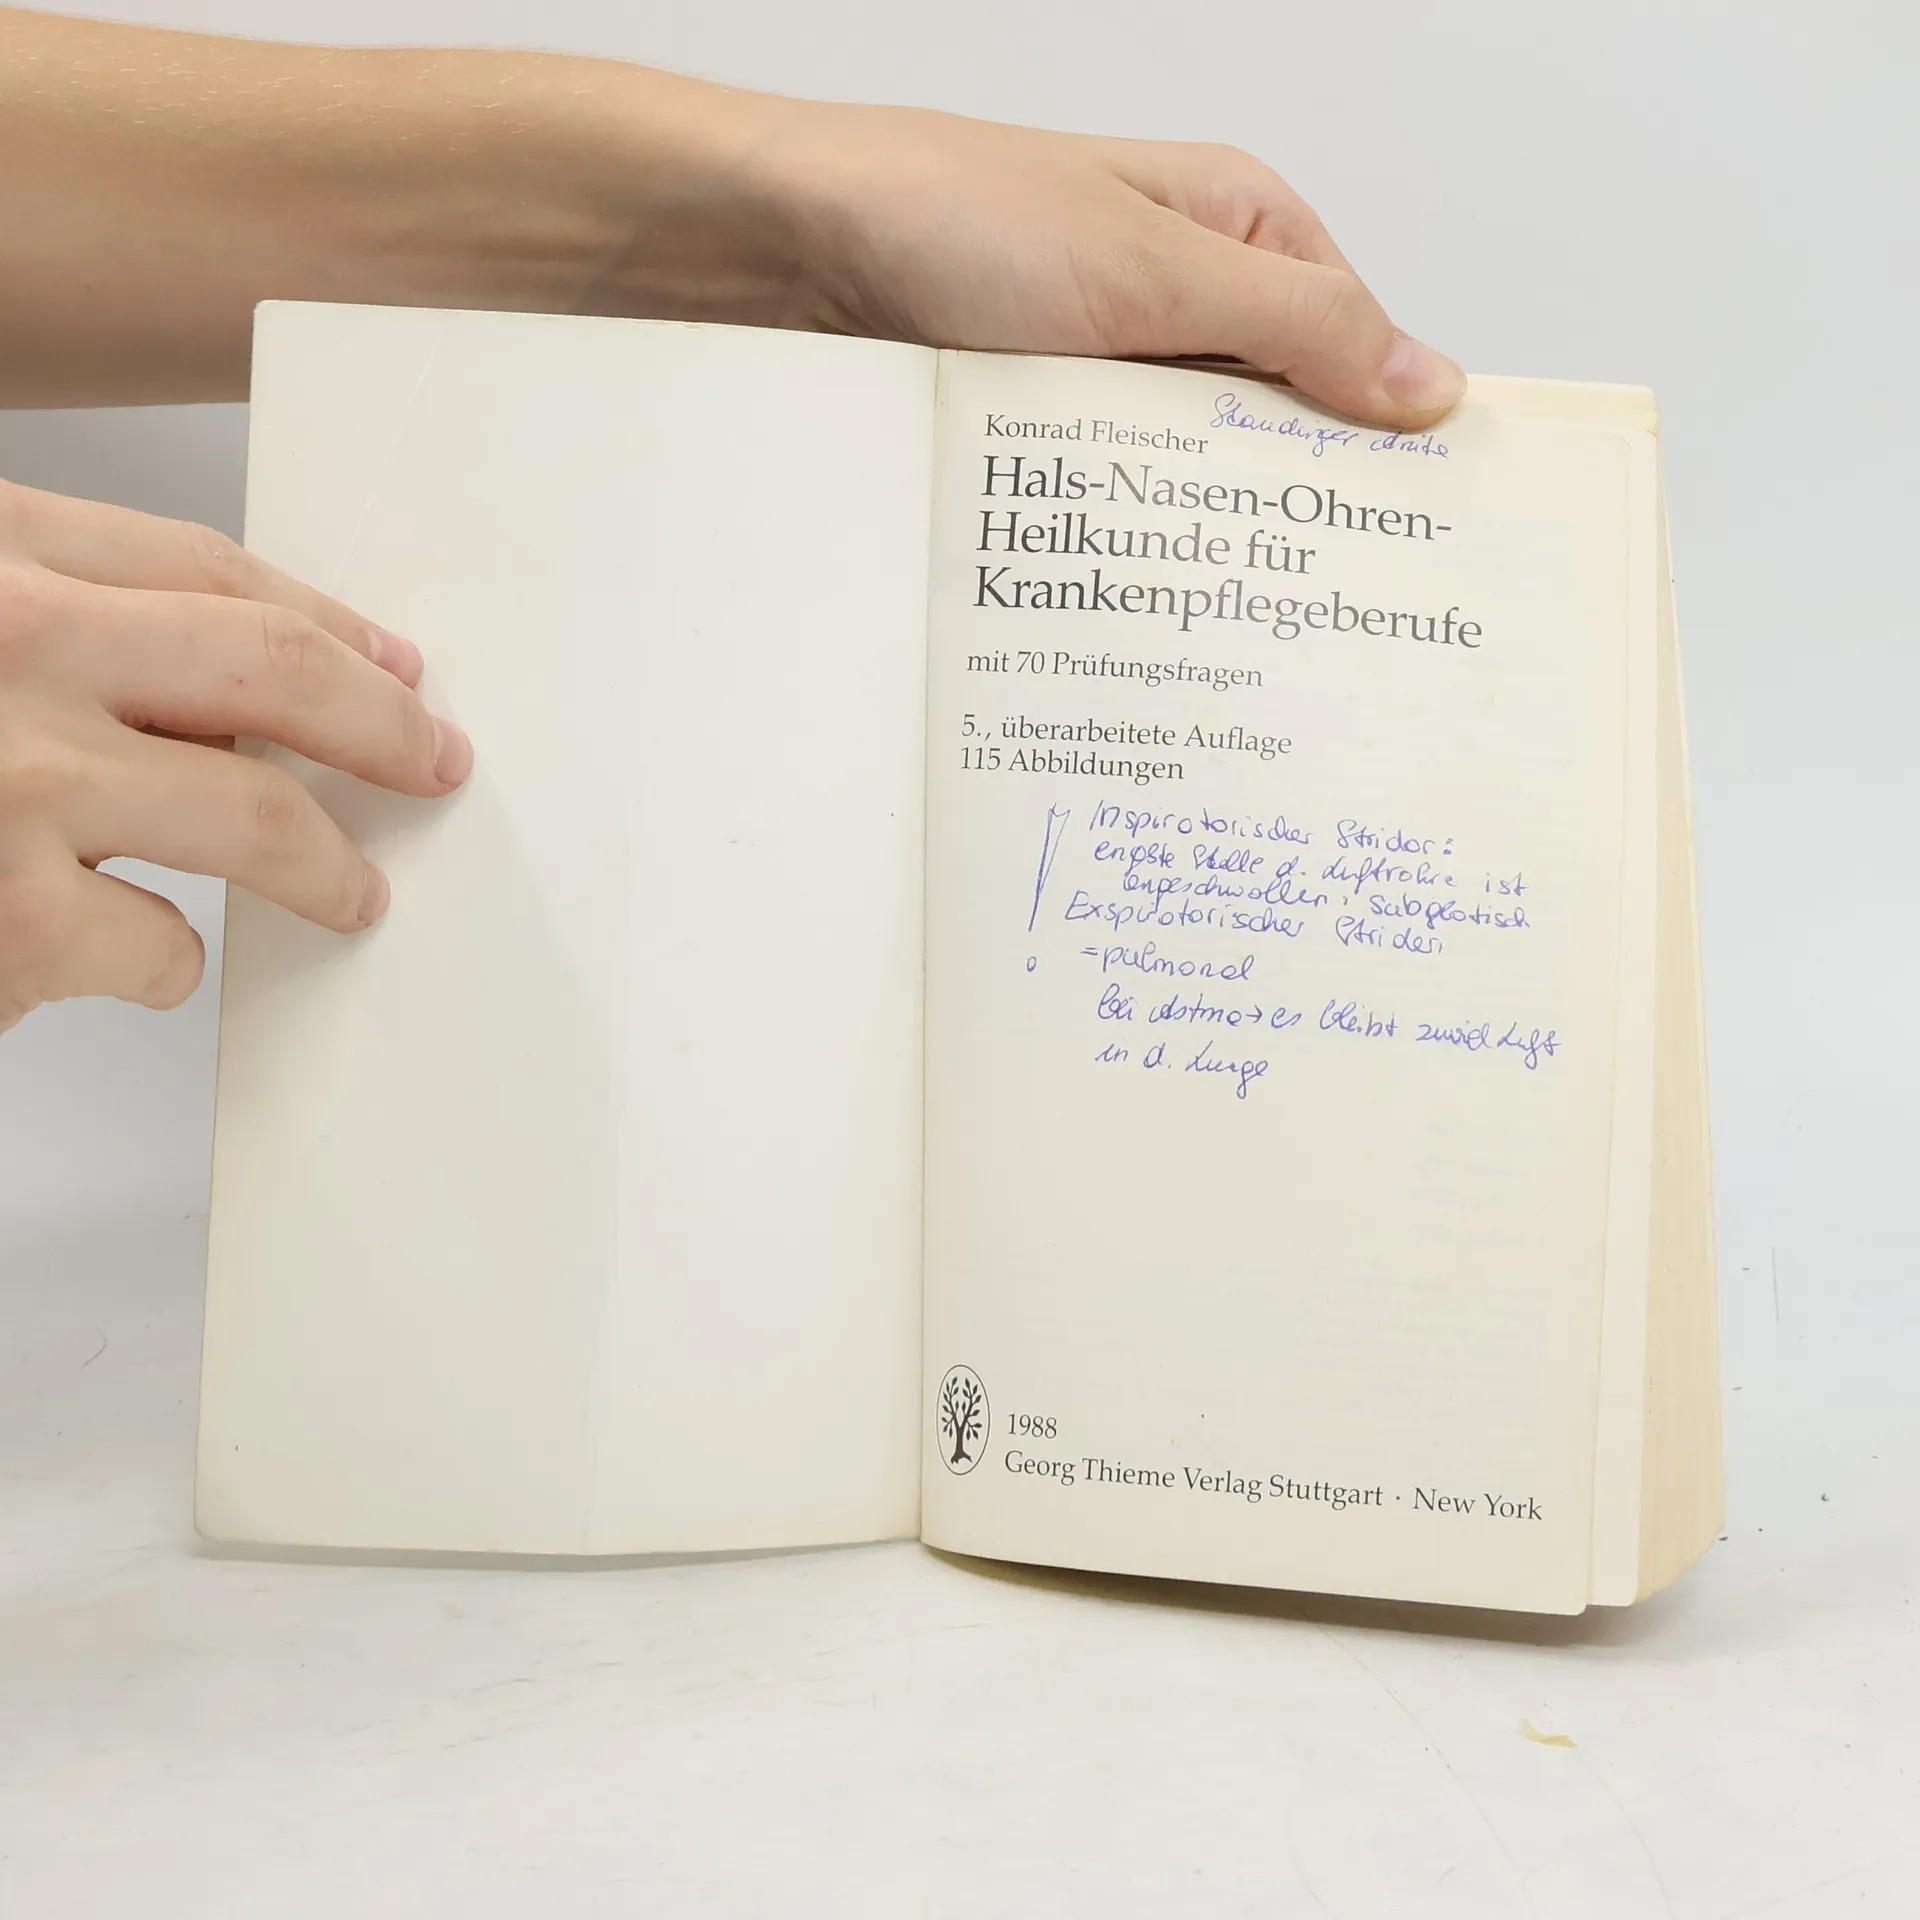 Staudinger Anita
Konrad Fleischer
Hals-Nasen-Ohren-
Heilkunde für
Krankenpflegeberufe
mit 70 Prüfungsfragen
5., überarbeitete Auflage
115 Abbildungen
! Inspiratorischer Stridor:
engste Stelle d. Luftrohre ist
angeschwollen, subglotisch
Exspiratorischer Stridor
=pulmonal
bei Astma→es bleibt zuviel Luft
in d. Lunge
1988
Georg Thieme Verlag Stuttgart · New York